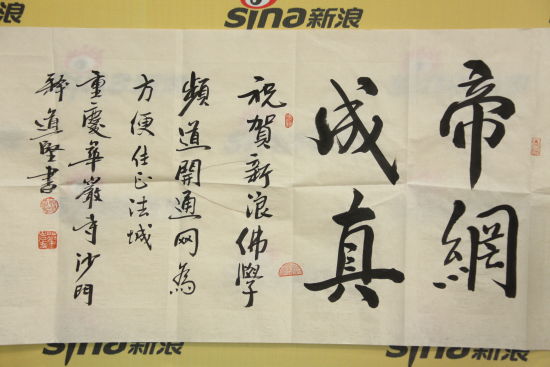 sina新浪
帝網
成真
祝賀新浪佛學
頻道開通网為
方便住正法城
重慶華巖寺沙門
釋道堅書
sina新浪
sina新浪